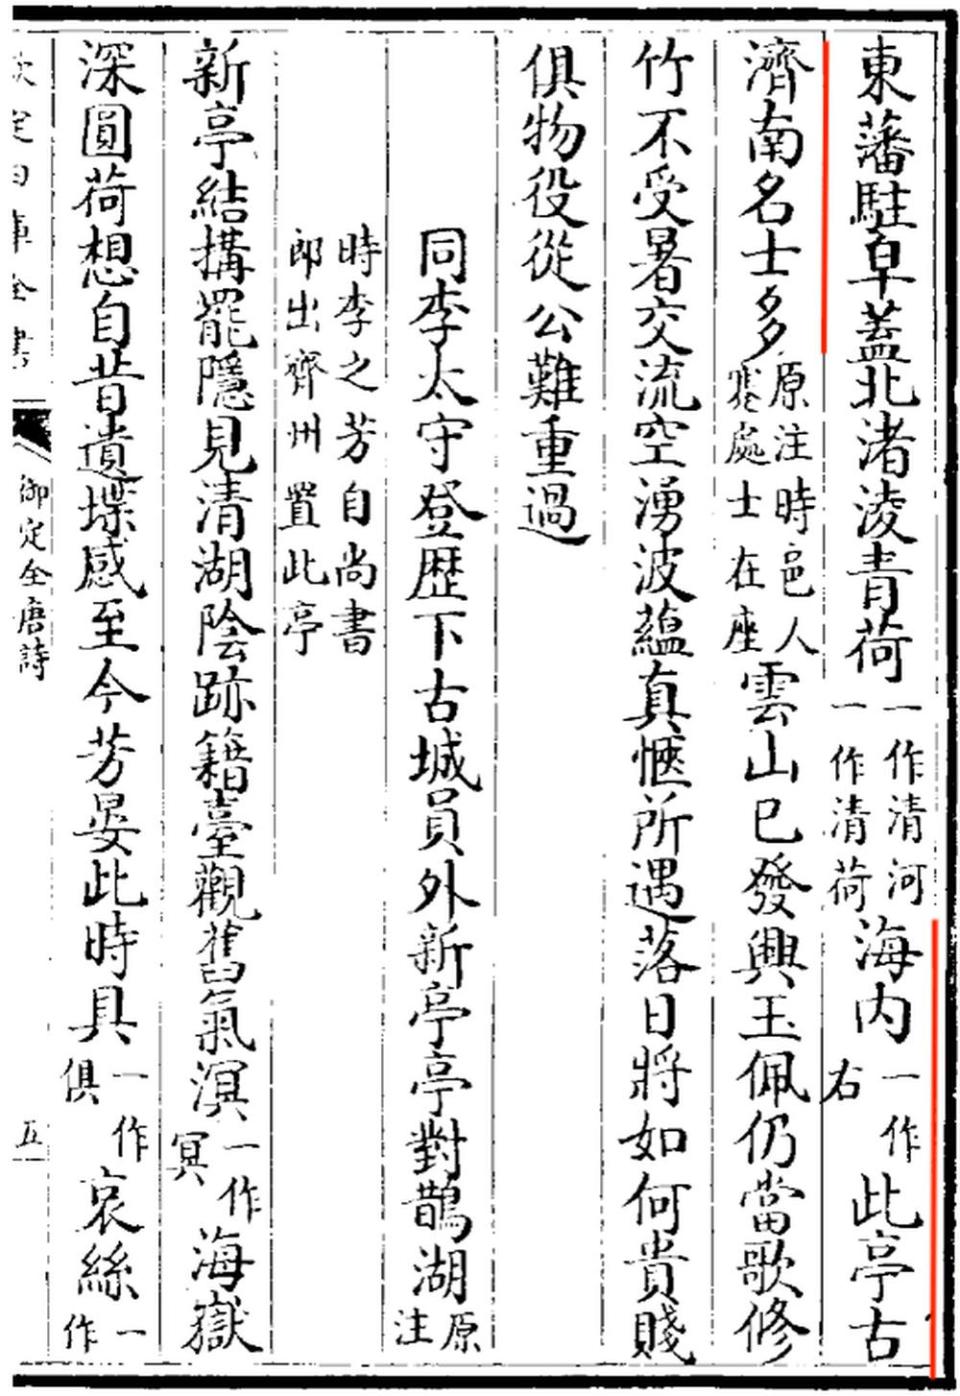 東藩駐皁蓋北渚淩青荷一作清河一作清荷海内一作右此亭古
濟南名士多原注時邑人蹇處士在座雲山已發興玉佩仍當歌修
竹不受暑交流空湧波蘊真愜所遇落日將如何貴賤
俱物役從公難重過
同李太守登歴下古城員外新亭亭對鵲湖原注
時李之芳自尚書
郎出齊州置此亭
新亭結搆罷隱見清湖陰跡籍臺觀舊氣溟一作冥海嶽
深圓荷想自昔遺堞感至今芳晏此時具一作俱哀絲一作
欽定四庫全書 御定全唐詩 五